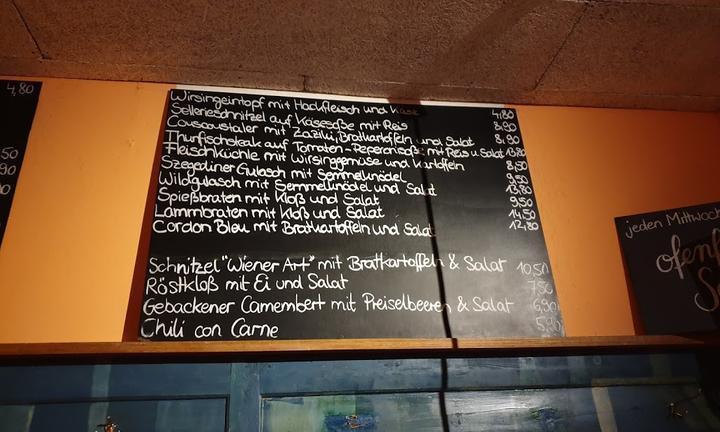 4,80
50
90
Wirsingeintopf mit Hackfleisch und Käse 4,80
Sellerieschnitzel auf Käsesoße mit Reis 8,90
Couscoustaler mit Zaziki, Bratkartoffeln und Salat 8,90
Thunfischsteak auf Tomaten-Peperonisoße mit Reis u. Salat 13,80
Fleischküchle mit Wirsinggemüse und Kartoffeln 8,50
Szegediner Gulasch mit Semmelknödel 9,50
Wildgulasch mit Semmelknödel und Salat 13,80
Spießbraten mit Kloß und Salat 9,50
Lammbraten mit Kloß und Salat 14,50
Cordon Bleu mit Bratkartoffeln und Salat 12,80
Schnitzel "Wiener Art" mit Bratkartoffeln & Salat 10,50
Röstkloß mit Ei und Salat 7,50
Gebackener Camembert mit Preiselbeeren & Salat 6,90
Chili con Carne
jeden Mittwoch